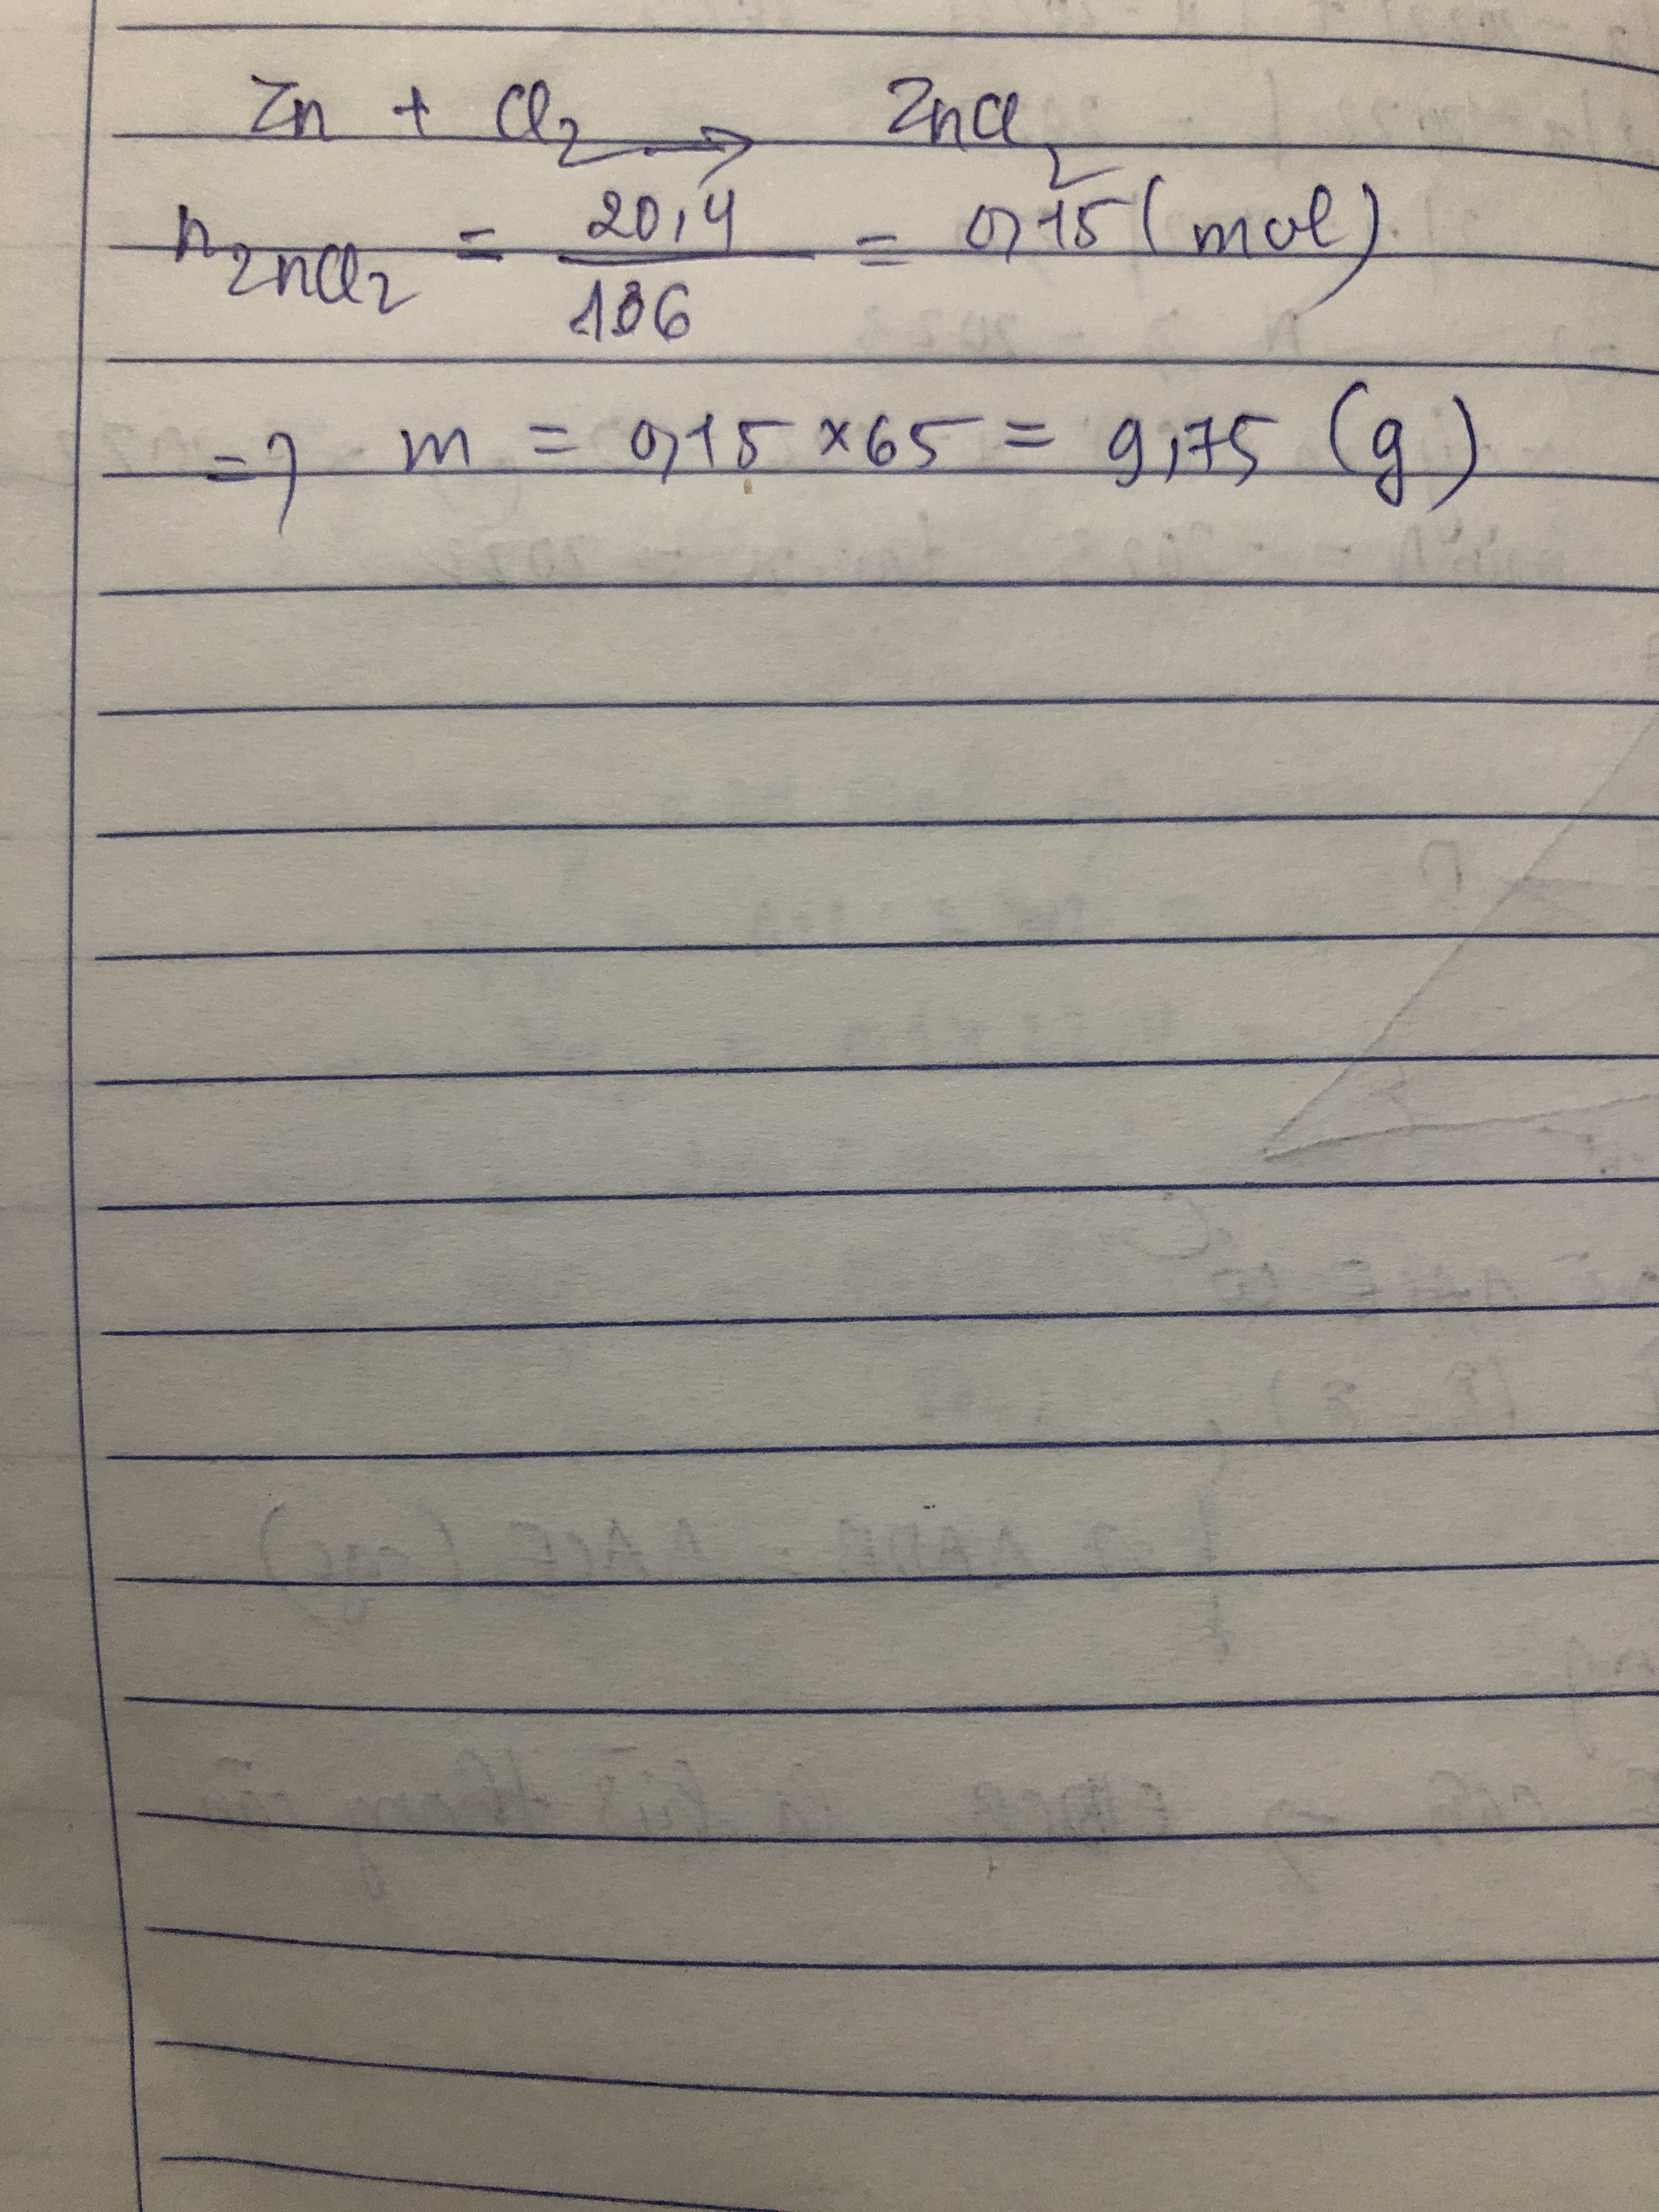 Zn + Cl2 → ZnCl2
nZnCl2 = 20,4/136 = 0,15 (mol)
=> m = 0,15 × 65 = 9,75 (g)